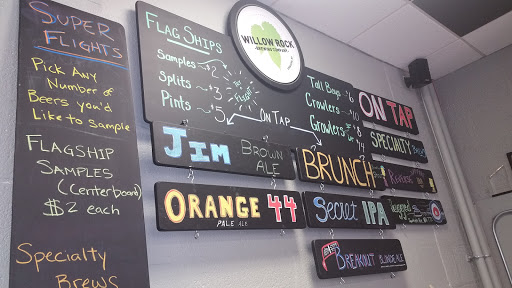 SUPER
FLIGHTS
PICK ANY
NUMBER OF
BEERS YOU'D
LIKE TO SAMPLE
FLAGSHIP
SAMPLES
(CENTERBOARD)
$2 each
Specialty
BREWS
FLAG SHIPS
Samples $2
Splits $3
Pints $5
FLIGHT
ON TAP
WILLOW ROCK
BREWING COMPANY
Tall Boys $6
Crowlers $10
Growlers
ON TAP
SPECIALTY
JIM BROWN ALE
BRUNCH
ORANGE 44
PALE ALE
Secret IPA
BREAKOUT BLONDE ALE